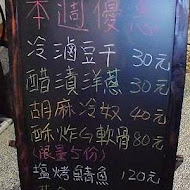 本週優惠
冷滷豆干 30元
醋漬洋蔥 30元
胡麻冷奴 40元
酥炸QQ軟骨 80元
(限量5份)
塩烤鯖魚 120元